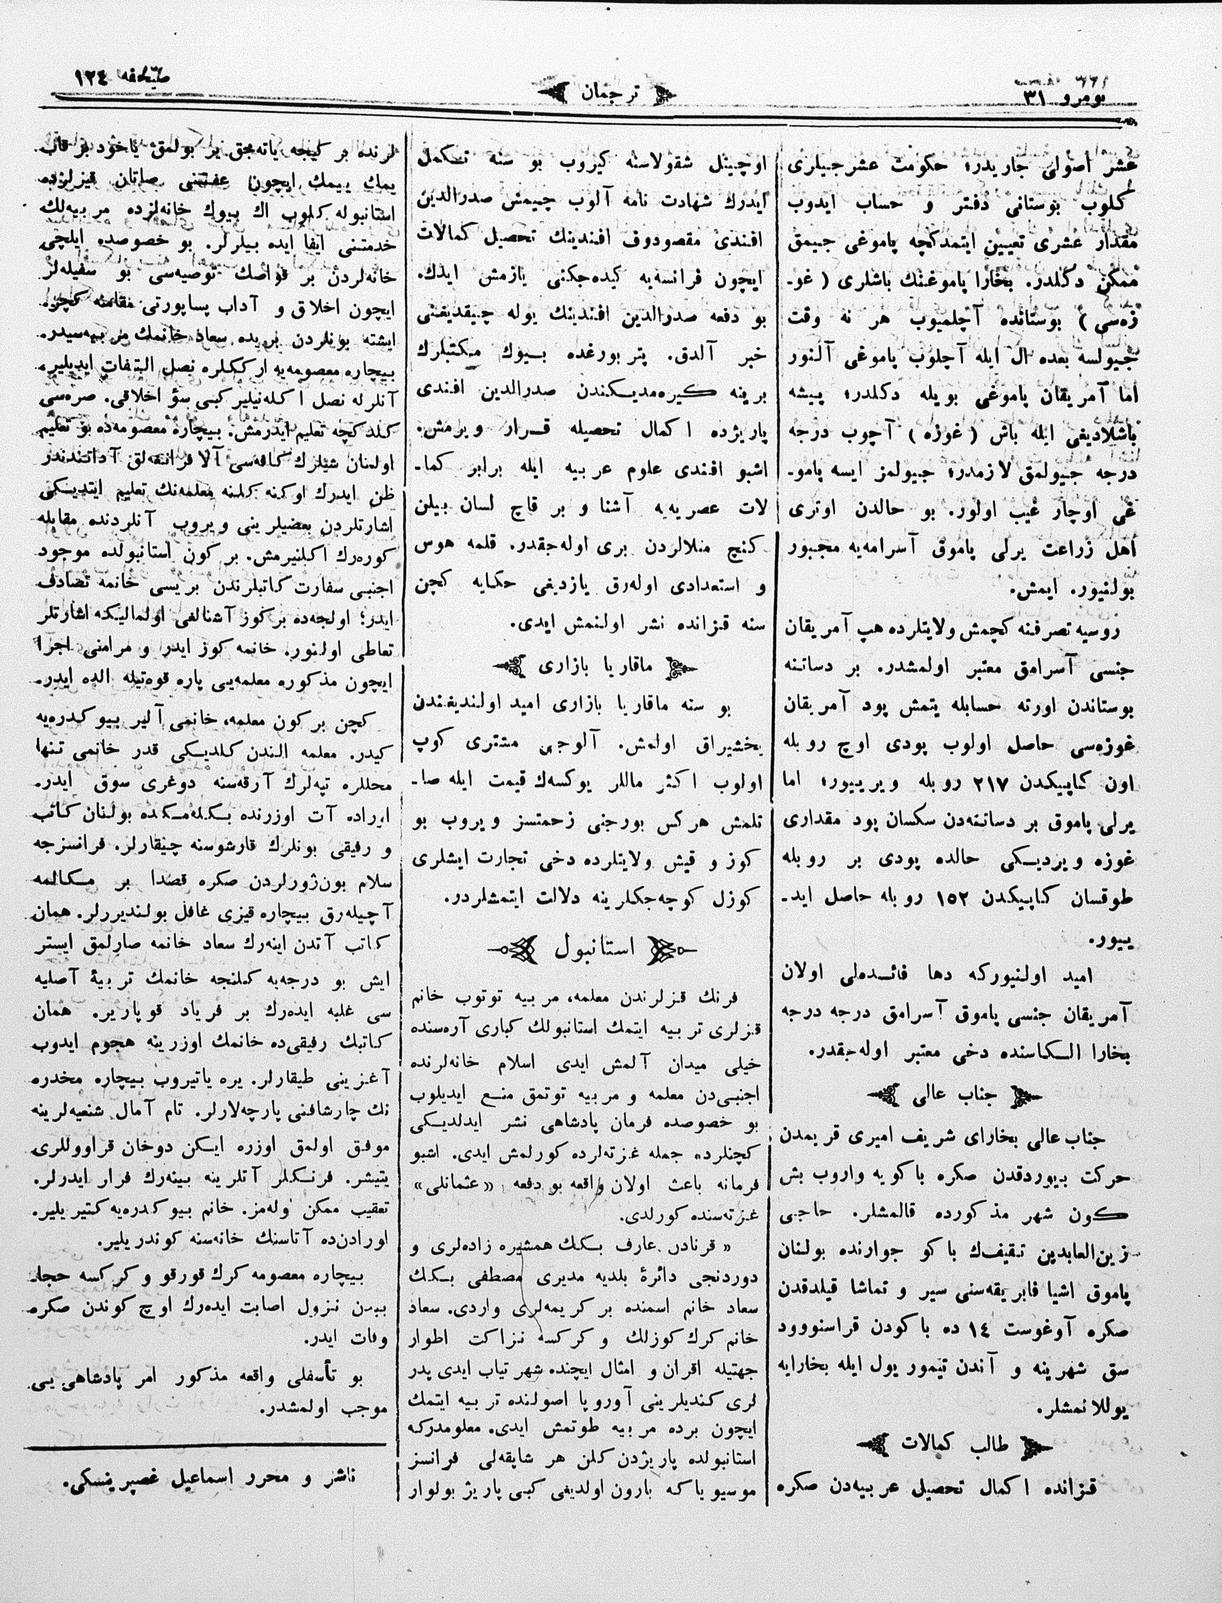 نومرو ٣١
ترجمان
صحیفه ١٢٤
عشر اصولی جاریدر؛ حکومت عشرجیلری
کلوب بوستانی دفتر و حساب ایدوب
مقدار عشری تعیین ایتمدکچه پاموغی جیمق
ممکن دکلدر. بخارا پاموغنك باشلری (غو-
زه‌سی) بوستانده آچلمیوب هر نه وقت
جیولسه بعده ال ایله آچلوب پاموغی آلنور
اما آمریقان پاموغی بویله دکلدر؛ پیشه
باشلادیغی ایله باش (غوزه) آچوب درجه
درجه جیولمق لازمدر؛ جیولمز ایسه پامو-
غی اوچار غیب اولور. بو حالدن اوتری
اهل زراعت یرلی پاموق آسرامه‌یه مجبور
بولنیور. ایمش.
روسیه تصرفنه کچمش ولایتلرده هپ آمریقان
جنسی آسرامق معتبر اولمشدر. بر دسانه
بوستاندن اورته حسابله یتمش پود آمریقان
غوزه‌سی حاصل اولوب پودی اوچ روبله
اون کاپیکدن ٢١٧ روبله ویرییور؛ اما
یرلی پاموق بر دسانته‌دن سکسان پود مقداری
غوزه ویردیکی حالده پودی بر روبله
طوقسان کاپیکدن ١٥٢ روبله حاصل اید-
ییور.
امید اولنیورکه دها فائده‌لی اولان
آمریقان جنسی پاموق آسرامق درجه درجه
بخارا الکاسنده دخی معتبر اوله‌جقدر.
جناب عالی
جناب عالی بخارای شریف امیری قریمدن
حرکت بیوردقدن صکره باکویه واروب بش
کون شهر مذکورده قالمشلر. حاجی
زین‌العابدین تقیف‌ك باکو جوارنده بولنان
پاموق اشیا فابریقه‌سنی سیر و تماشا قیلدقدن
صکره آوغوست ١٤ ده باکودن قراسنووود
سق شهرینه و آندن تیمور یول ایله بخارایه
یوللانمشلر.
طالب کمالات
قزانده اکمال تحصیل عربیه‌دن صکره
اوچیتل شقولاسنه کیروب بو سنه تکمل
ایدرك شهادت نامه آلوب چیمش صدرالدین
افندی مقصودوف افندینك تحصیل کمالات
ایچون فرانسه‌یه کیده‌جکنی یازمش ایدك.
بو دفعه صدرالدین افندینك یوله چیقدیغنی
خبر آلدق. پتربورغده بیوك مکتبلرك
برینه کیره‌مدیکندن صدرالدین افندی
پاریژده اکمال تحصیله قرار ویرمش.
اشبو افندی علوم عربیه ایله برابر کما-
لات عصریه‌یه آشنا و بر قاچ لسان بیلن
کنچ منلالردن بری اوله‌جقدر. قلمه هوس
و استعدادی اوله‌رق یازدیغی حکایه کچن
سنه قزانده نشر اولنمش ایدی.
ماقاریا بازاری
بو سنه ماقاریا بازاری امید اولندیغندن
یخشیراق اولمش. آلوجی مشتری کوپ
اولوب اکثر ماللر یوکسه‌ك قیمت ایله صا-
تلمش هرکس بورجنی زحمتسز ویروب بو
کوز و قیش ولایتلرده دخی تجارت ایشلری
کوزل کوچه‌جکلرینه دلالت ایتمشلردر.
استانبول
فرنك قزلرندن معلمه، مربیه توتوب خانم
قزلری تربیه ایتمك استانبولك کباری آره‌سنده
خیلی میدان آلمش ایدی اسلام خانه‌لرنده
اجنبی‌دن معلمه و مربیه توتمق منع ایدیلوب
بو خصوصده فرمان پادشاهی نشر ایدلدیکی
کچنلرده جمله غزته‌لرده کورلمش ایدی. اشبو
فرمانه باعث اولان واقعه بو دفعه «عثمانلی»
غزته‌سنده کورلدی.
« قرنادن عارف بکك همشیره زاده‌لری و
دوردنجی دائرهٔ بلدیه مدیری مصطفی بکك
سعاد خانم اسمنده بر کریمه‌لری واردی. سعاد
خانم کرك کوزلك و کرکسه نزاکت اطوار
جهتیله اقران و امثال ایچنده شهرتیاب ایدی پدر
لری کندیلرینی آوروپا اصولنده تربیه ایتمك
ایچون برده مربیه طوتمش ایدی. معلومدرکه
استانبولده پاریژدن کلن هر شاپقه‌لی فرانسز
موسیو یا که بارون اولدیغی کبی پاریژ بولوار
لرنده بر کیجه یاته‌جق یر بولمق یاخود بر قاب
یمك ییمك ایچون عفتنی صاتان قیزلرده
استانبوله کلوب اك بیوك خانه‌لرده مربیه‌لك
خدمتنی ایفا ایده بیلرلر. بو خصوصده ایلچی
خانه‌لردن بر قواصك توصیه‌سی بو سفیله‌لر
ایچون اخلاق و آداب پساپورتی مقامنه کچر.
ایشته بونلردن بریده سعاد خانمك مربیه‌سیدر.
بیچاره معصومه‌یه ارککلره نصل التفات ایدیلیر.
آنلرله نصل اکله‌نیلیر کبی سؤ اخلاقی. صره‌سی
کلدکچه تعلیم ایدرمش. بیچاره معصومه‌ده بو تعلیم
اولنان شیلرك کافه‌سی آلا فرانقه‌لق آدابندندر
ظن ایدرك اوکنه کلنه معلمه‌نك تعلیم ایتدیکی
اشارتلردن بعضیلرینی ویروب آنلردنده مقابله
کوره‌رك اکلنیرمش. بر کون استانبولده موجود
اجنبی سفارت کاتبلرندن بریسی خانمه تصادف
ایدر؛ اولجه‌ده بر کوز آشنالغی اولمالیکه اشارتلر
تعاطی اولنور. خانمه کوز ایدر و مرامنی اجرا
ایچون مذکوره معلمه‌یی پاره قوه‌تیله الده ایدر.
کچن بر کون معلمه، خانمی آلیر بیوکدره‌یه
کیدر. معلمه الندن کلدیکی قدر خانمی تنها
محللره تپه‌لرك آرقه‌سنه دوغری سوق ایدر.
اوراده آت اوزرنده بکله‌مکده بولنان کاتب
و رفیقی بونلرك قارشوسنه چیقارلر. فرانسزجه
سلام بون‌ژورلردن صکره قصدا بر مکالمه
آچیله‌رق بیچاره قیزی غافل بولندیررلر. همان
کاتب آتدن اینه‌رك سعاد خانمه صارلمق ایستر
ایش بو درجه‌یه کلنجه خانمك تربیهٔ آصلیه
سی غلبه ایده‌رك بر فریاد قوپاریر. همان
کاتبك رفیقی‌ده خانمك اوزرینه هجوم ایدوب
آغزینی طیقارلر. یره یاتیروب بیچاره مخدره
نك چارشافنی پارچه‌لارلر. تام آمال شنعیه‌لرینه
موفق اولمق اوزره ایکن دوخان قراووللری
یتیشر. فرنکلر آتلرینه بینه‌رك فرار ایدرلر.
تعقیب ممکن اوله‌مز. خانم بیوکدره‌یه کتیریلیر.
اورادن‌ده آتاسنك خانه‌سنه کوندریلیر.
بیچاره معصومه کرك قورقو و کرکسه حجابـ
ـبندن نزول اصابت ایده‌رك اوچ کوندن صکره
وفات ایدر.
بو تأسفلی واقعه مذکور امر پادشاهی یی
موجب اولمشدر.
ناشر و محرر اسماعیل غصپرینسکی.